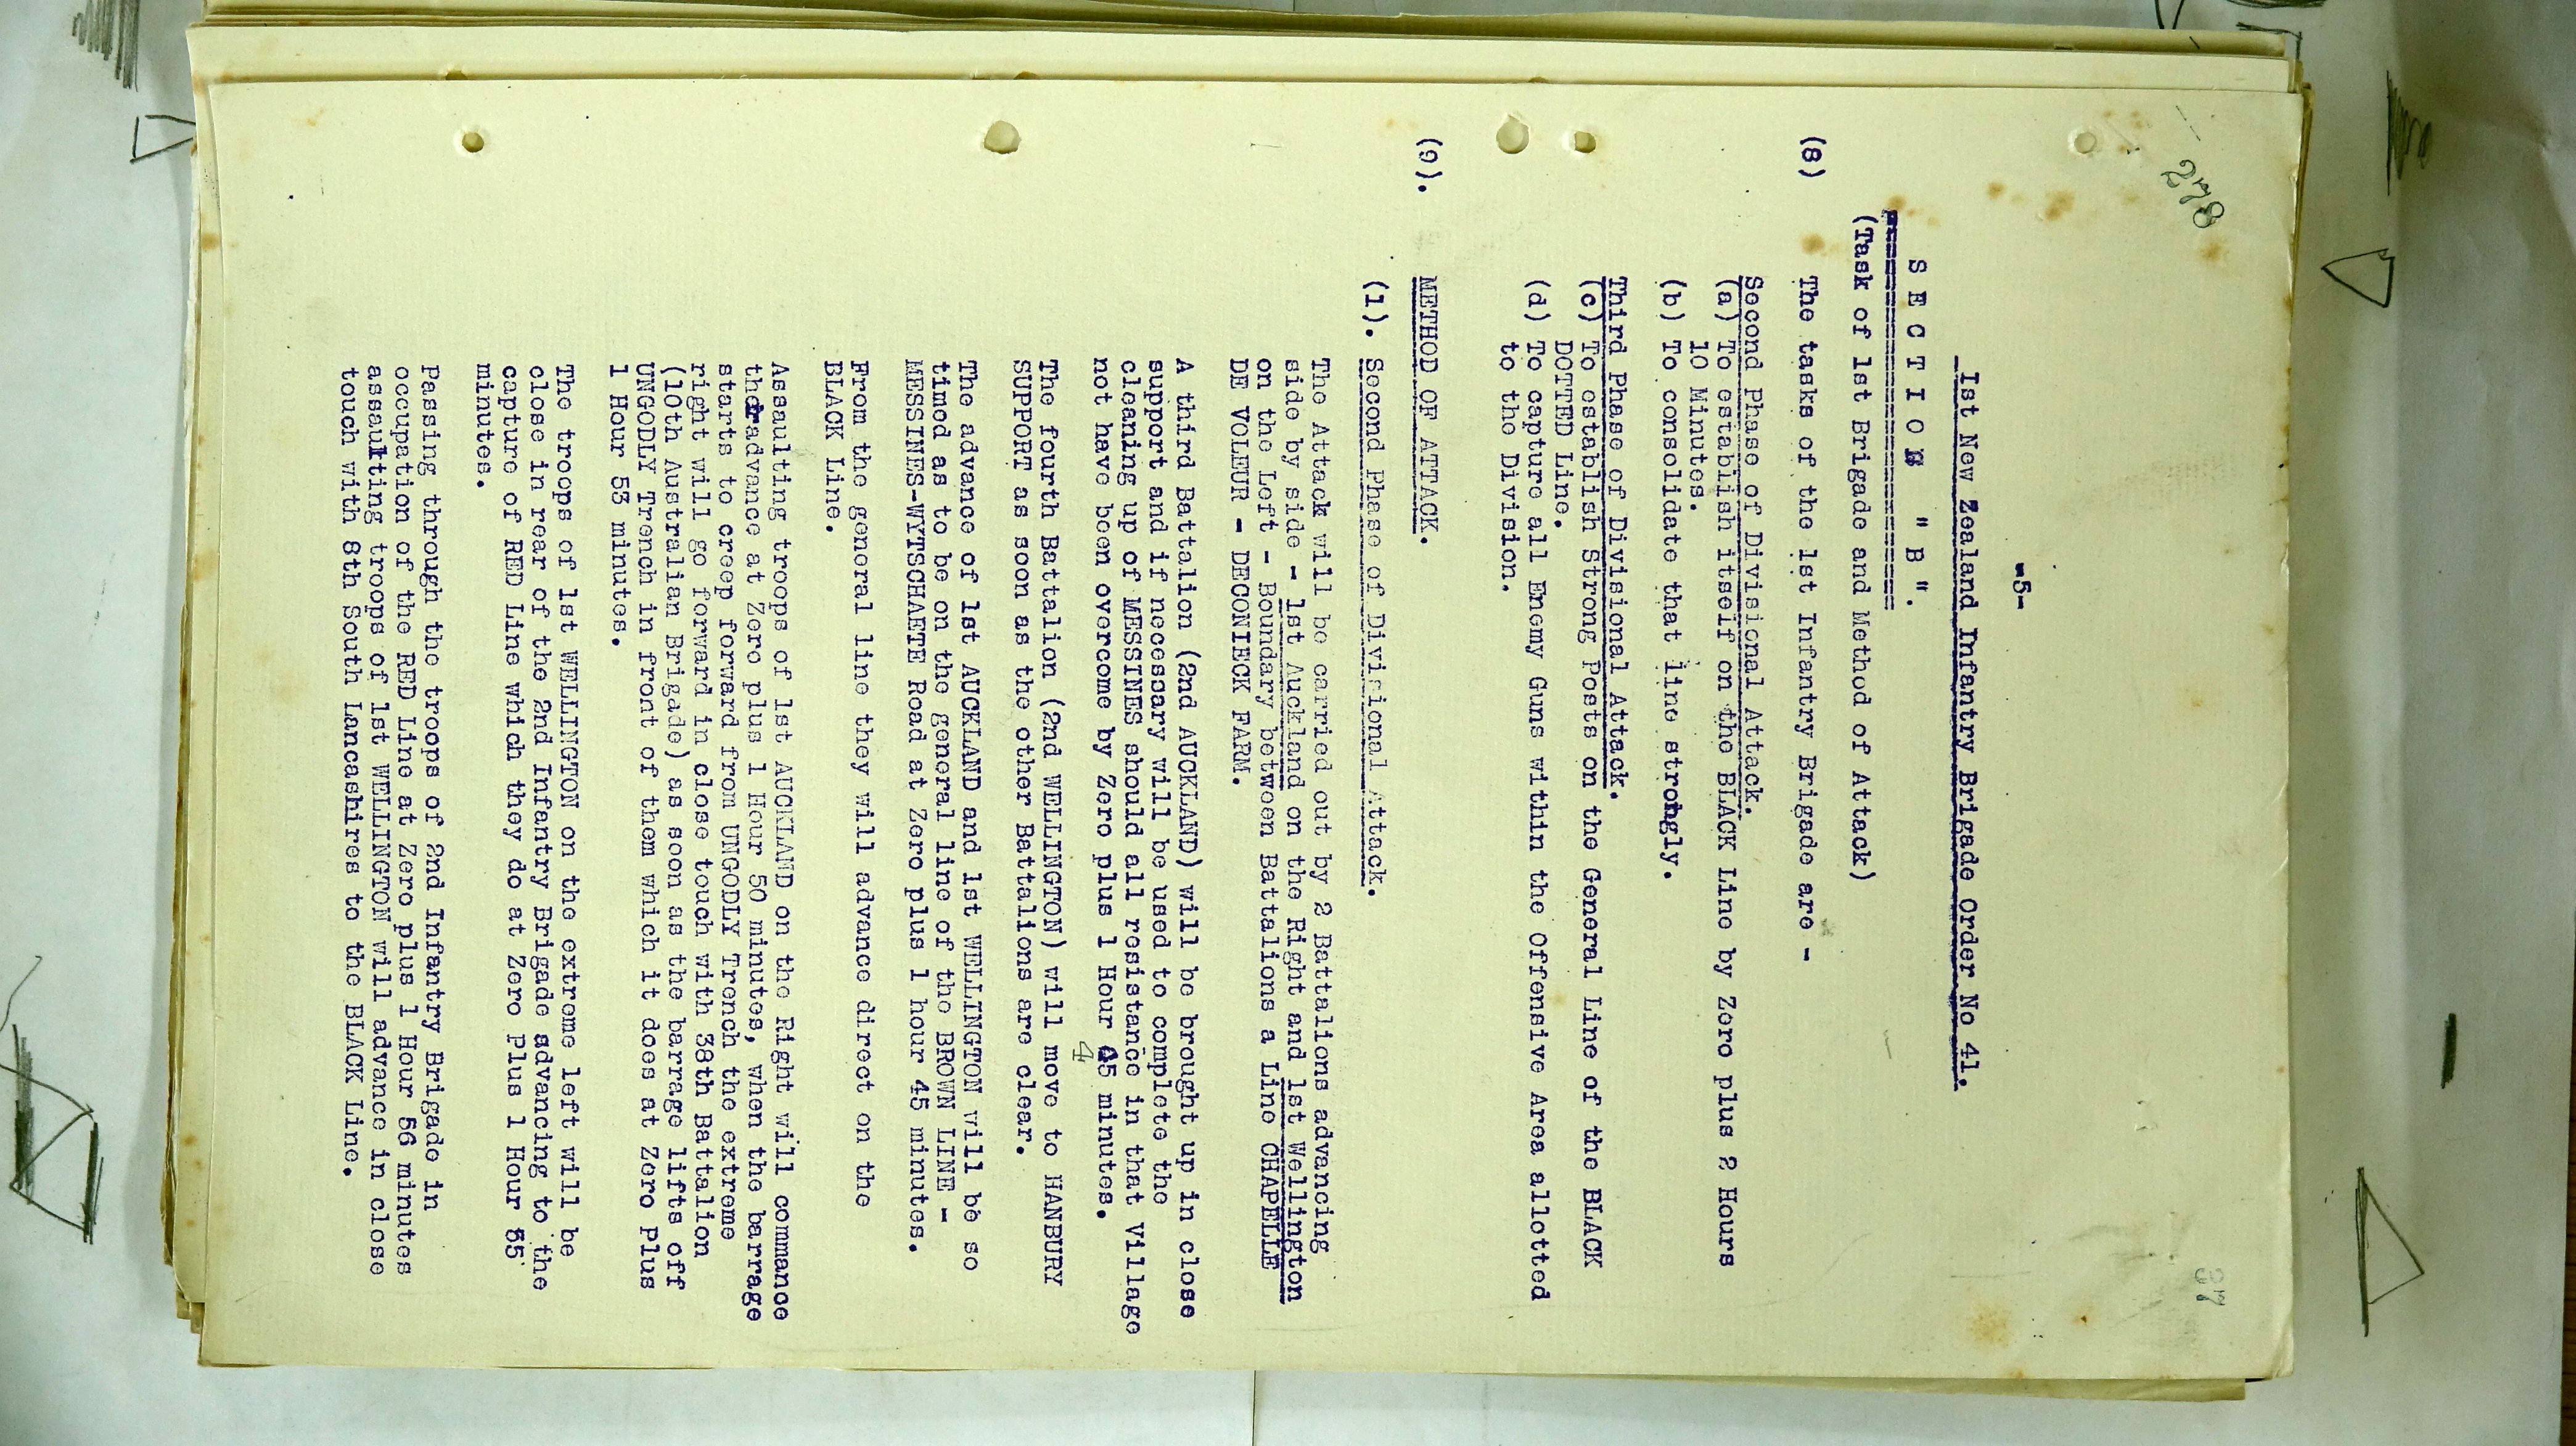 278
37
-5-
1st New Zealand Infantry Brigade Order No 41.
S E C T I O N "B".
(Task of 1st Brigade and Method of Attack)
(8) The tasks of the 1st Infantry Brigade are -
Second Phase of Divisional Attack.
(a) To establish itself on the BLACK Line by Zero plus 2 Hours
10 Minutes.
(b) To consolidate that line strongly.
Third Phase of Divisional Attack.
(c) To establish Strong Posts on the General Line of the BLACK
DOTTED Line.
(d) To capture all Enemy Guns within the Offensive Area allotted
to the Division.
(9). METHOD OF ATTACK.
(1). Second Phase of Divisional Attack.
The Attack will be carried out by 2 Battalions advancing
side by side - 1st Auckland on the Right and 1st Wellington
on the Left - Boundary between Battalions a Line CHAPELLE
DE VOLEUR - DECONIECK FARM.
A third Battalion (2nd AUCKLAND) will be brought up in close
support and if necessary will be used to complete the
cleaning up of MESSINES should all resistance in that Village
not have been overcome by Zero plus 1 Hour 45 minutes.
The fourth Battalion (2nd WELLINGTON) will move to HANBURY
SUPPORT as soon as the other Battalions are clear.
The advance of 1st AUCKLAND and 1st WELLINGTON will be so
timed as to be on the general line of the BROWN LINE -
MESSINES-WYTSCHAETE Road at Zero plus 1 hour 45 minutes.
From the general line they will advance direct on the
BLACK Line.
Assaulting troops of 1st AUCKLAND on the Right will commance
their advance at Zero plus 1 Hour 50 minutes, when the barrage
starts to creep forward from UNGODLY Trench the extreme
right will go forward in close touch with 38th Battalion
(10th Australian Brigade) as soon as the barrage lifts off
UNGODLY Trench in front of them which it does at Zero Plus
1 Hour 53 minutes.
The troops of 1st WELLINGTON on the extreme left will be
close in rear of the 2nd Infantry Brigade advancing to the
capture of RED Line which they do at Zero Plus 1 Hour 55
minutes.
Passing through the troops of 2nd Infantry Brigade in
occupation of the RED Line at Zero plus 1 Hour 56 minutes
assaulting troops of 1st WELLINGTON will advance in close
touch with 8th South Lancashires to the BLACK Line.